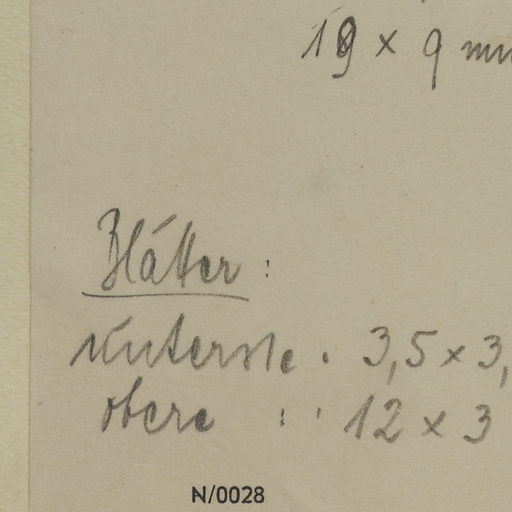 19 × 9 mm
Blätter :
unterste . 3,5 × 3,
obere : . 12 × 3
N/0028